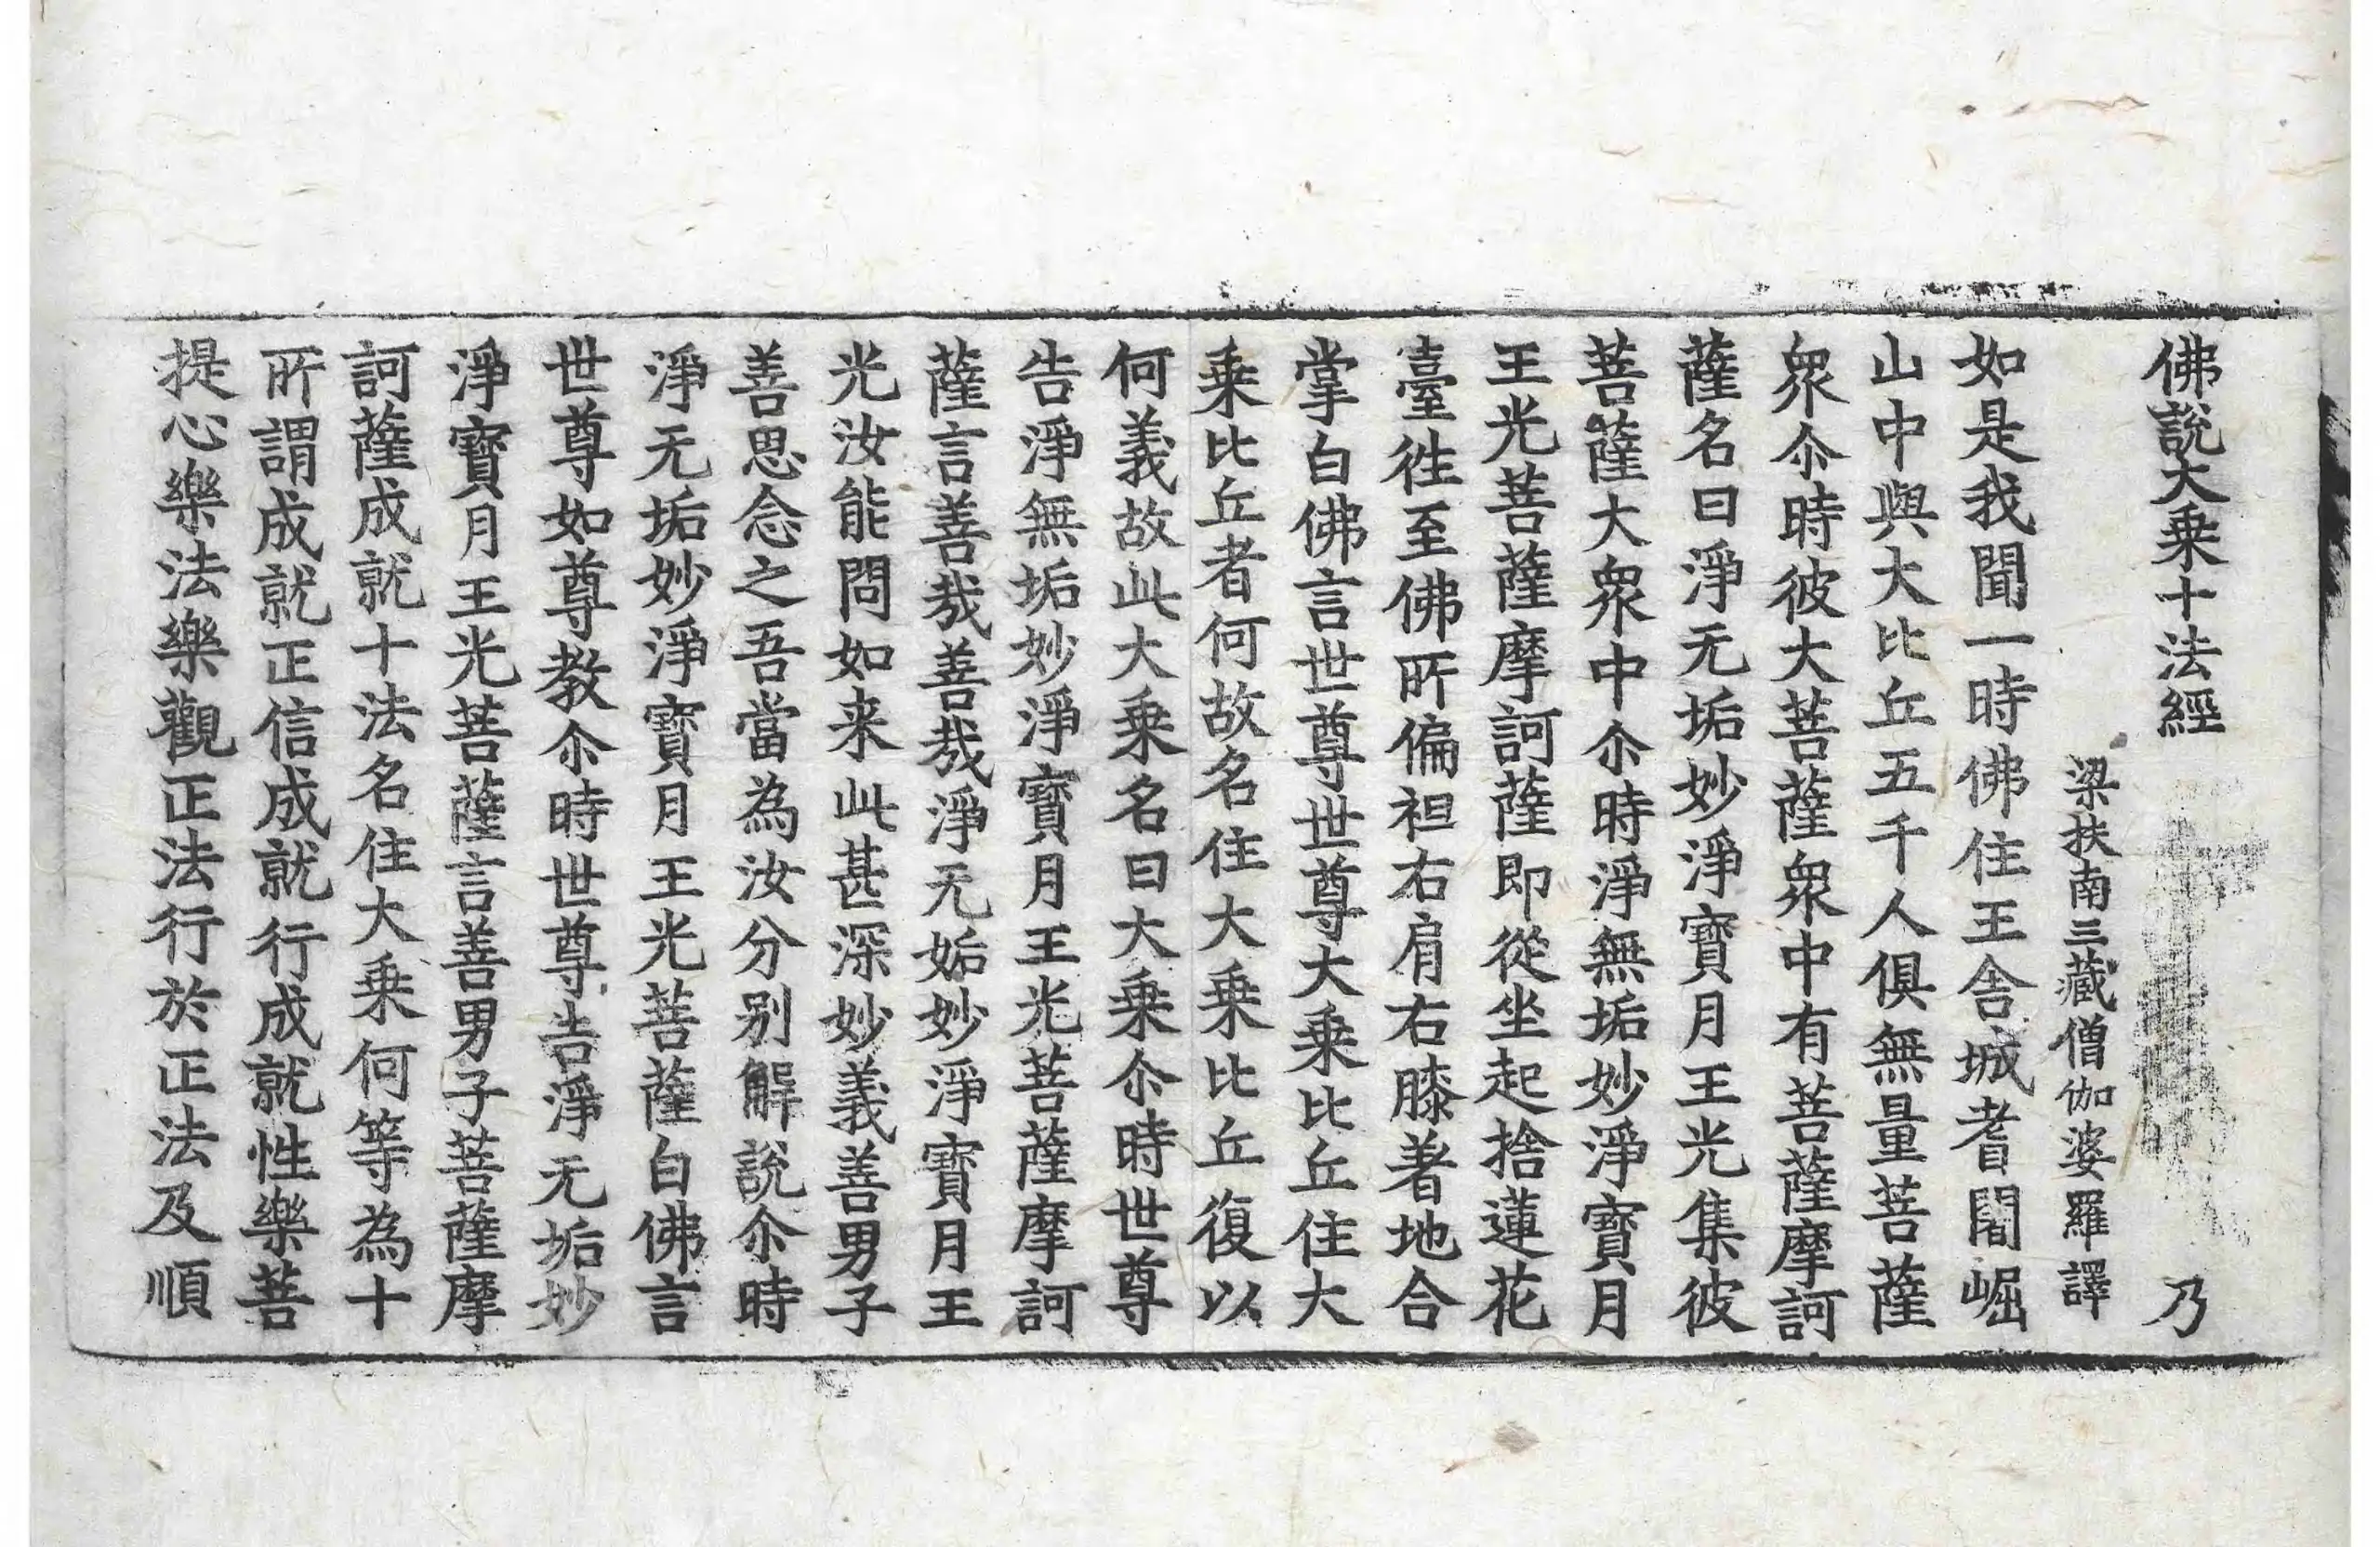 佛説大乗十法經 乃
梁扶南三藏僧伽婆羅譯
如是我聞一時佛住王舎城耆闍崛
山中與大比丘五千人俱無量菩薩
衆尒時彼大菩薩衆中有菩薩摩訶
薩名曰淨无垢妙淨寶月王光集彼
菩薩大衆中尒時淨無垢妙淨寶月
王光菩薩摩訶薩即從坐起捨蓮花
臺徃至佛所偏袒右肩右膝著地合
掌白佛言世尊世尊大乗比丘住大
乗比丘者何故名住大乗比丘復以
何義故此大乗名曰大乗尒時世尊
告淨無垢妙淨寶月王光菩薩摩訶
薩言善哉善哉淨无姤妙淨寶月王
光汝能問如来此甚深妙義善男子
善思念之吾當為汝分别解説尒時
淨无垢妙淨寶月王光菩薩白佛言
世尊如尊教尒時世尊告淨无垢妙
淨寶月王光菩薩言善男子菩薩摩
訶薩成就十法名住大乗何等為十
所謂成就正信成就行成就性樂菩
提心樂法樂觀正法行於正法及順